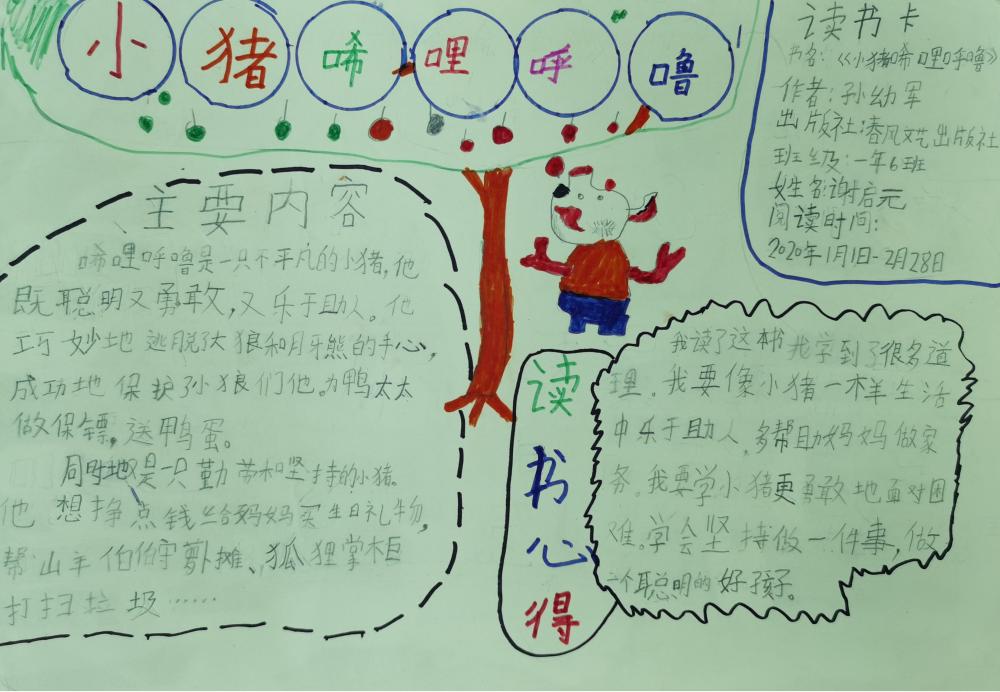 小猪唏哩呼噜
读书卡
书名:《小猪唏哩呼噜》
作者:孙幼军
出版社:春风文艺出版社
班级:一年6班
姓名:谢启元
阅读时间:
2020年1月1日-2月28日
主要内容
唏哩呼噜是一只不平凡的小猪,他
既聪明又勇敢,又乐于助人。他
巧妙地逃脱了大狼和月牙熊的手心,
成功地保护小狼们他为鸭太太
做保镖,送鸭蛋。
同时他又是一只勤劳和坚持的小猪。
他想挣点钱给妈妈买生日礼物,
帮山羊伯伯守萝卜摊、狐狸掌柜
打扫垃圾……
读书心得
我读了这本书我学到了很多道
理。我要像小猪一样生活
中乐于助人,多帮助妈妈做家
务。我要学小猪更勇敢地面对困
难。学会坚持做一件事,做
一个聪明的好孩子。